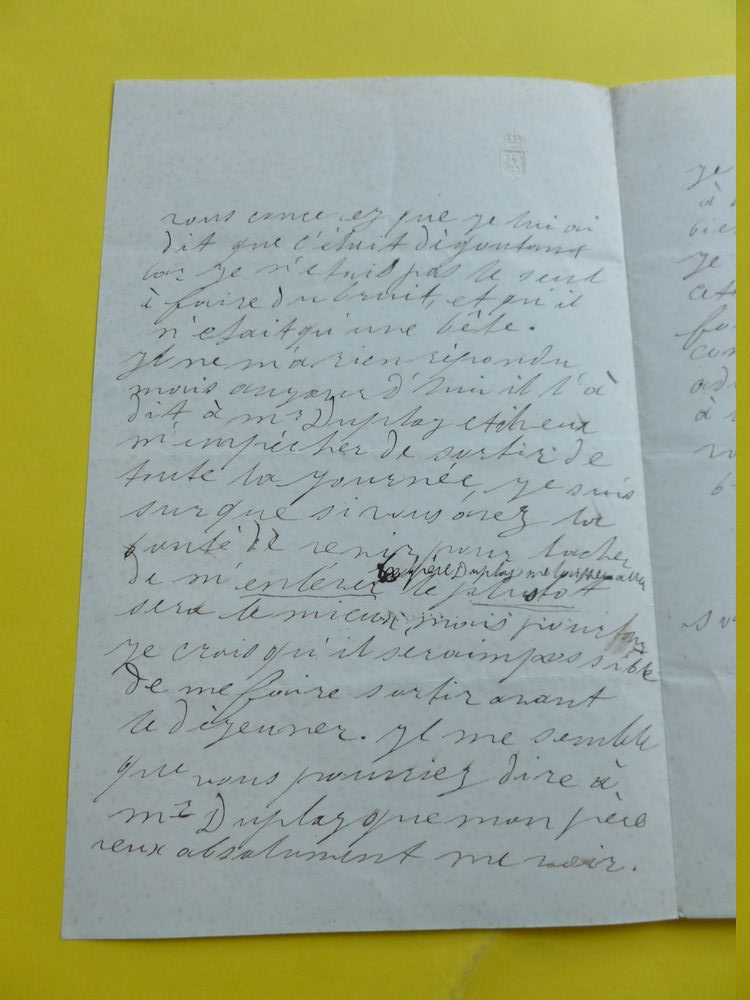 vous concevez que je lui ai
dit que c'était dègoutant
car je n'étais pas le seul
à faire du bruit, et qu'il
n'était qu'une bête.
Il ne m'a rien répondu
mais aujour d'hui il l'à
dit à mr Duplay et il veux
m'empêcher de sortir de
toute la journée, je suis
sur que si vous avez la
bonté de venir pour tacher
de m'enlever le plustott
sera le mieux, mais pour
je crois qu'il sera impossible
de me faire sortir avant
le dèjeuner. Il me semble
que vous pourriez dire à
mr Duplay que mon père
veux absolument me voir.
je
à
bie
je
à